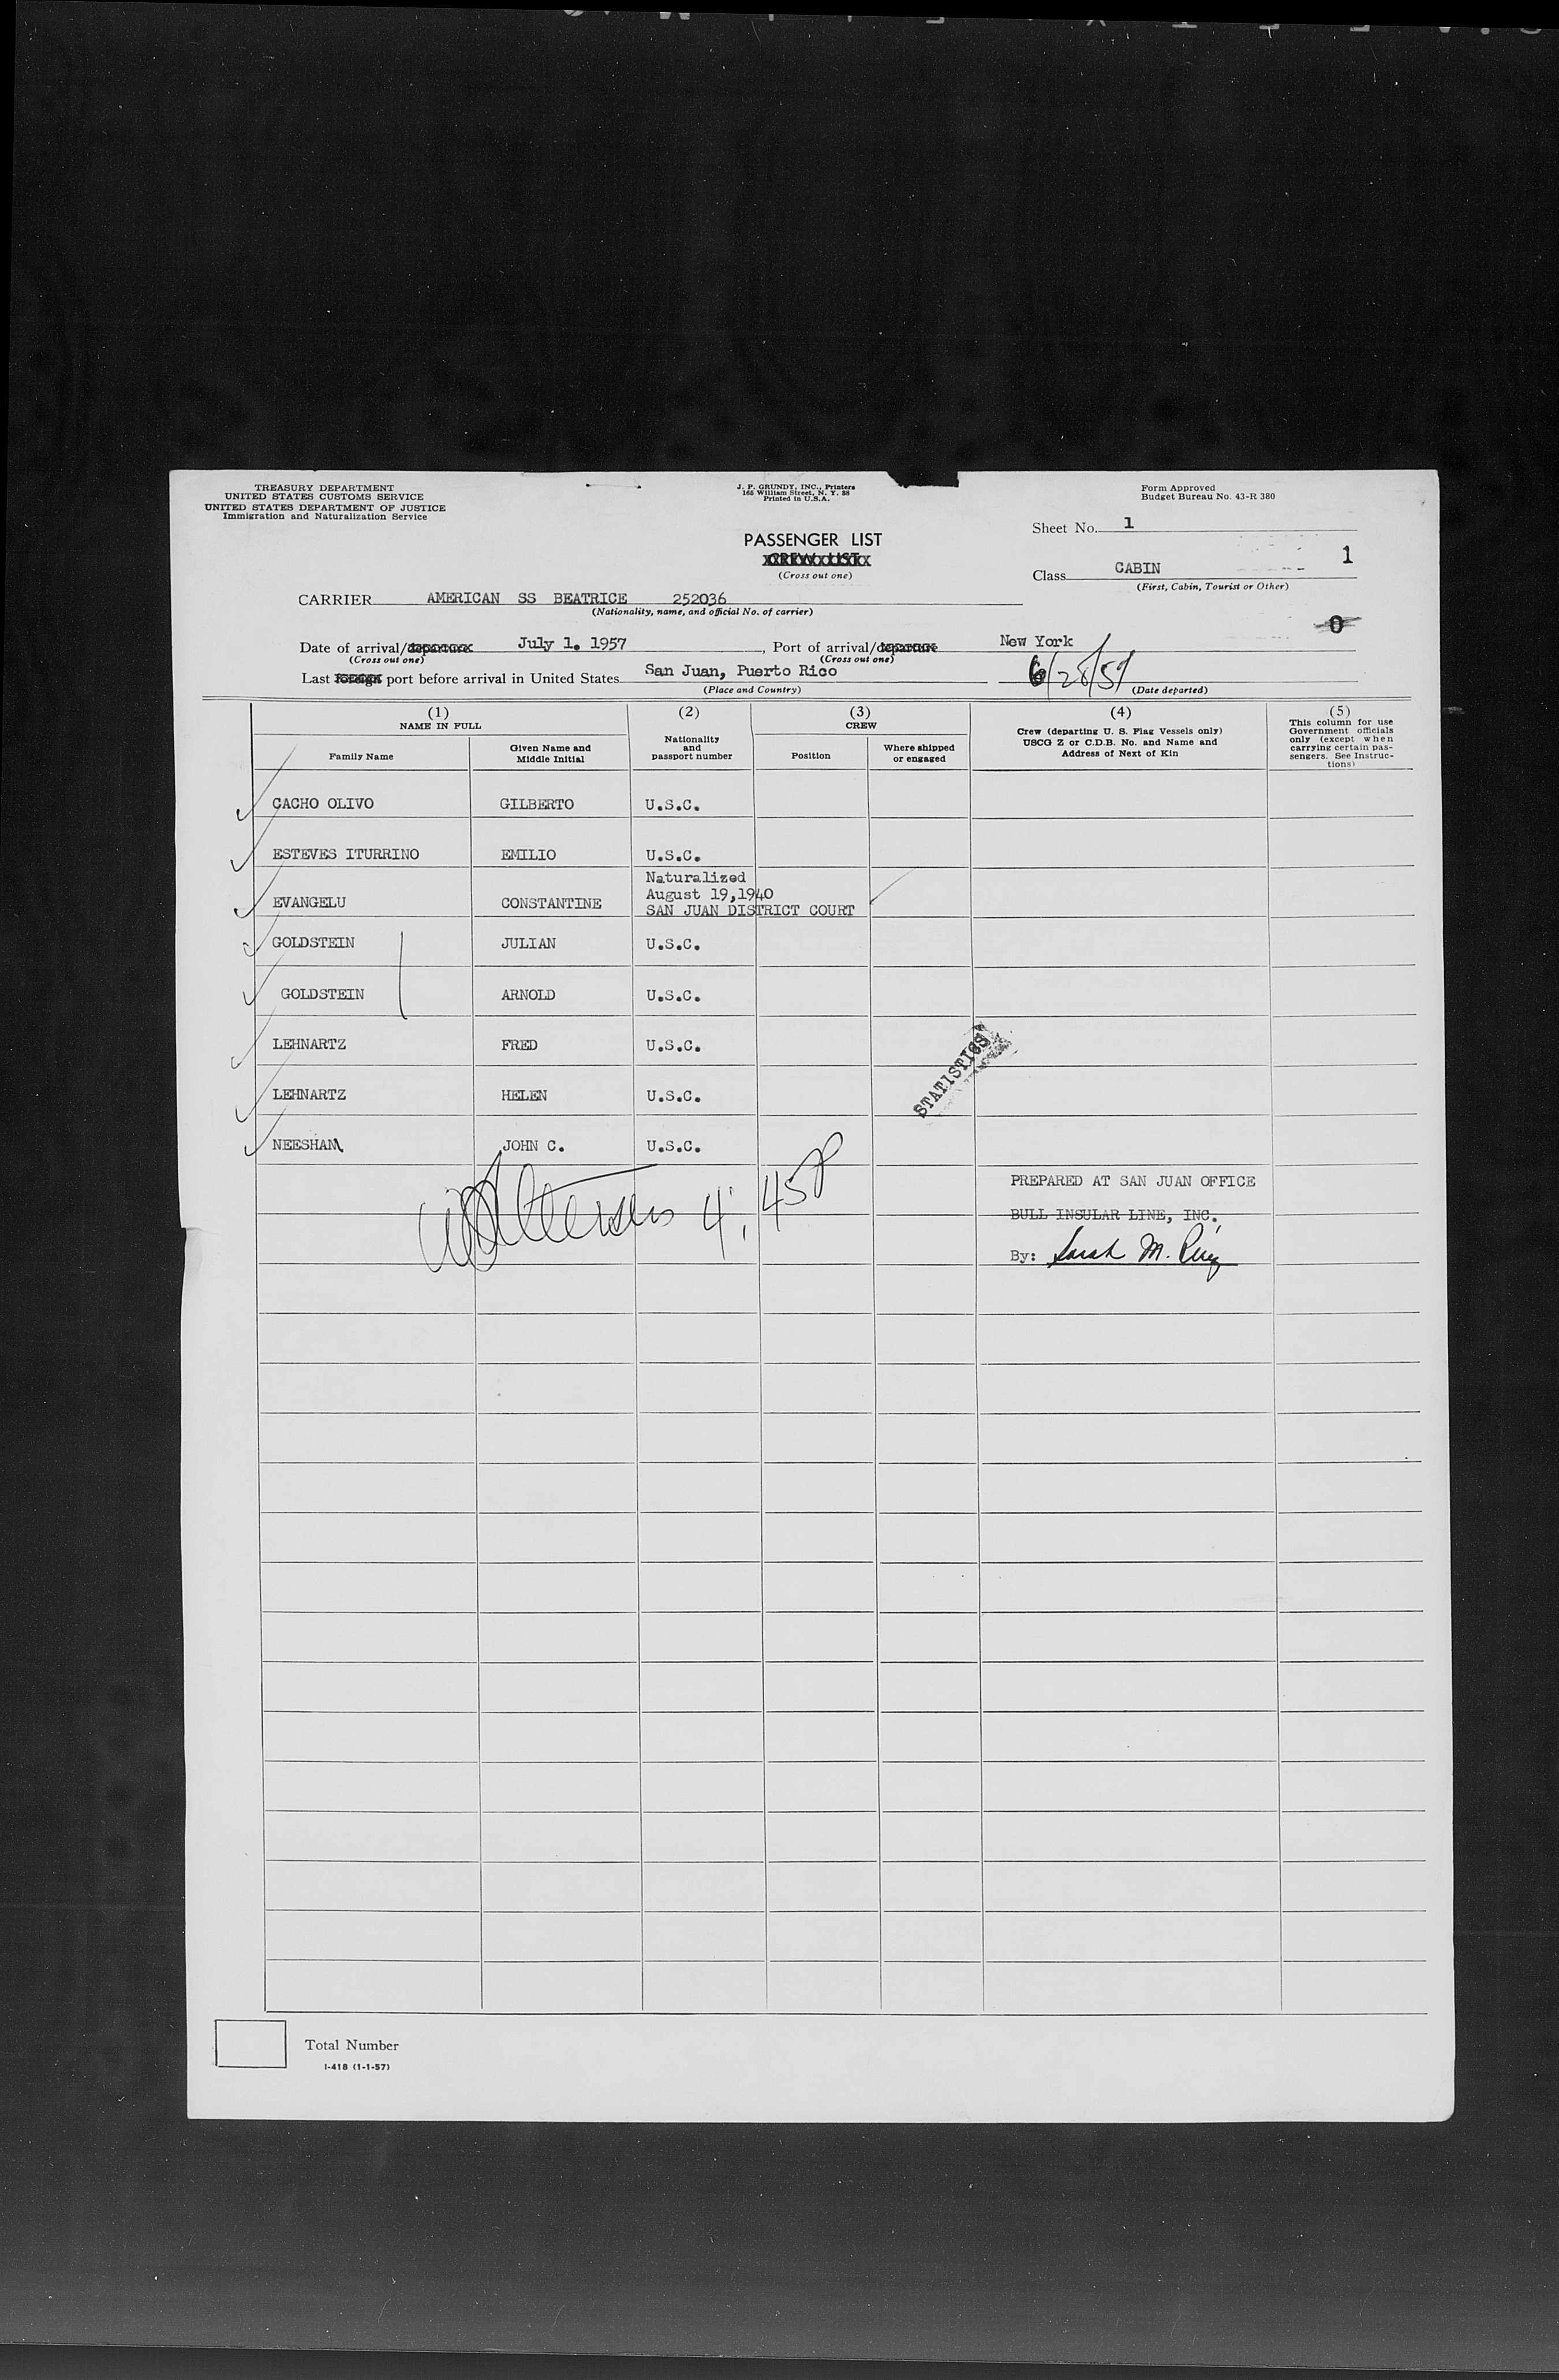 TREASURY DEPARTMENT
UNITED STATES CUSTOMS SERVICE
UNITED STATES DEPARTMENT OF JUSTICE
Immigration and Naturalization Service
J. P. GRUNDY, INC., Printers
165 William Street, N. Y. 38
Printed in U.S.A.
Form Approved
Budget Bureau No. 43-R 380
Sheet No. 1
PASSENGER LIST
CREW LIST
(Cross out one)
1
Class CABIN
(First, Cabin, Tourist or Other)
CARRIER AMERICAN SS BEATRICE 252036
(Nationality, name, and official No. of carrier)
0
Date of arrival/departure July 1. 1957, Port of arrival/departure New York
(Cross out one) (Cross out one)
Last foreign port before arrival in United States San Juan, Puerto Rico 6/28/57
(Place and Country) (Date departed)
(1) (2) (3) (4) (5)
NAME IN FULL
Family Name
Given Name and
Middle Initial
Nationality
and
passport number
CREW
Position
Where shipped
or engaged
Crew (departing U. S. Flag Vessels only)
USCG Z or C.D.B. No. and Name and
Address of Next of Kin
This column for use
Government officials
only (except when
carrying certain pas-
sengers. See Instruc-
tions)
CACHO OLIVO GILBERTO U.S.C.
ESTEVES ITURRINO EMILIO U.S.C.
Naturalized
August 19,1940
EVANGELU CONSTANTINE SAN JUAN DISTRICT COURT
GOLDSTEIN JULIAN U.S.C.
GOLDSTEIN ARNOLD U.S.C.
LEHNARTZ FRED U.S.C.
LEHNARTZ HELEN U.S.C.
STATISTICS
NEESHAN JOHN C. U.S.C.
4:45P
PREPARED AT SAN JUAN OFFICE
BULL INSULAR LINE, INC.
By: Sarah M.
Total Number
I-418 (1-1-57)